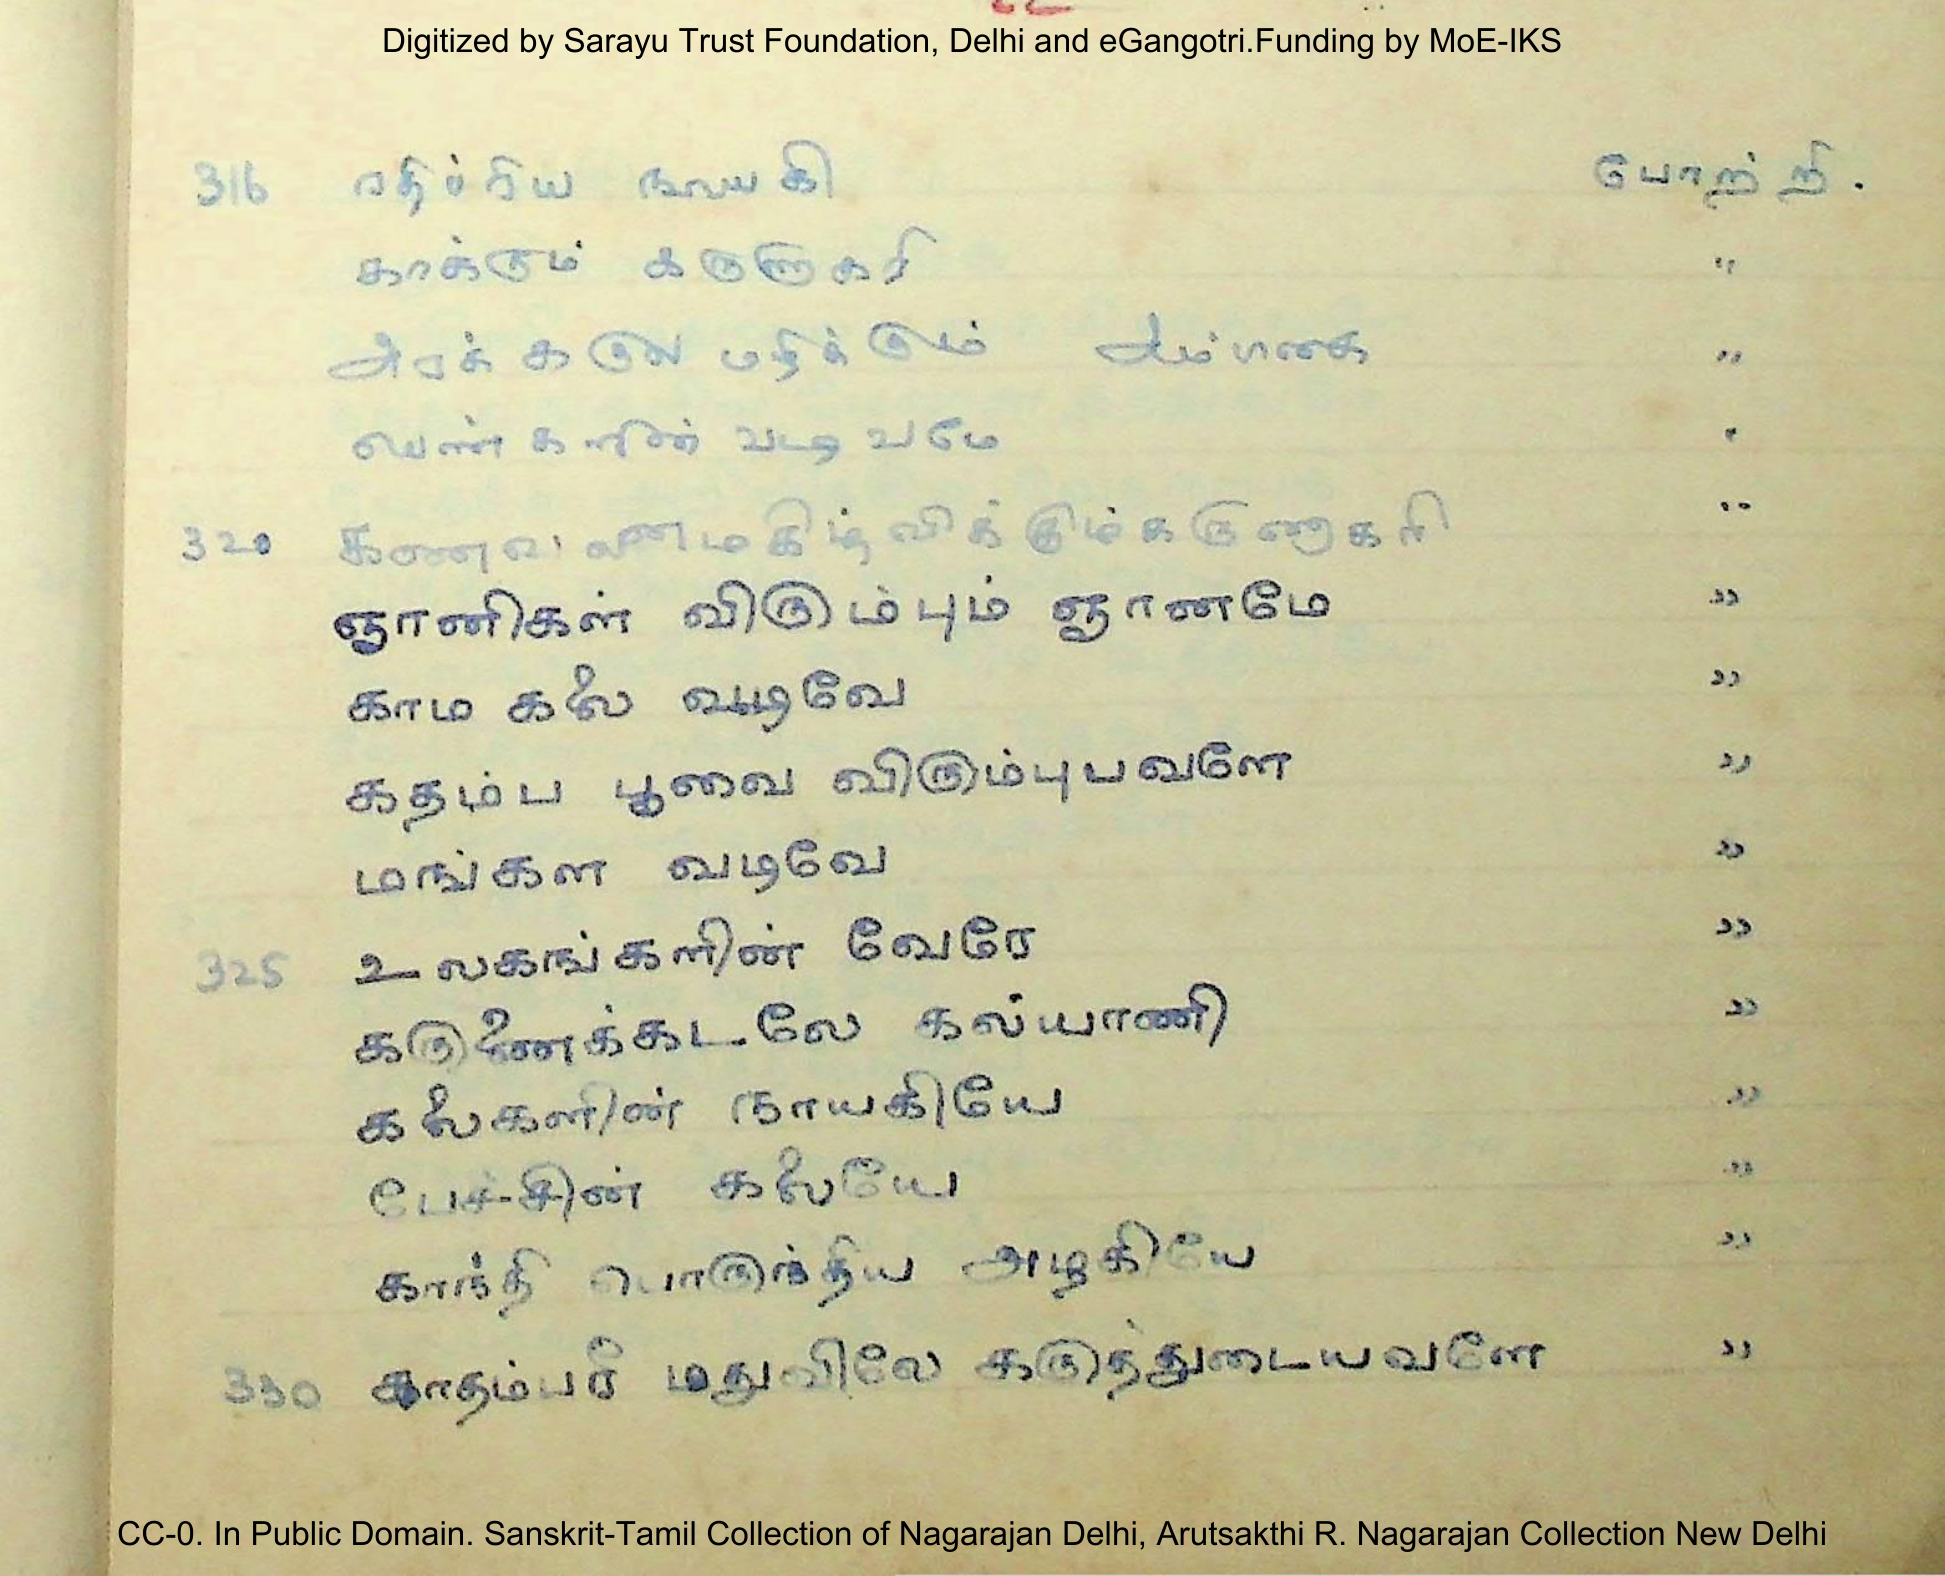 Digitized by Sarayu Trust Foundation, Delhi and eGangotri.Funding by MoE-IKS
316 ரதிப்ரிய நாயகி போற்றி.
காக்கும் கருணாகரி "
அரக்கருள மழிக்கும் அம்பிகை "
பெண்களின் வடிவமே "
320 கணவனை மகிழ்விக்கும் கருணாகரி "
ஞானிகள் விரும்பும் ஞானமே "
காம கலை வடிவே "
கதம்ப பூவை விரும்புபவளே "
மங்கள வடிவே "
325 உலகங்களின் வேரே "
கருணைக்கடலே கல்யாணி "
கலைகளின் நாயகியே "
பேச்சின் கலையே "
காந்தி பொருந்திய அழகியே "
330 காதம்பரி மதுவிலே கருத்துடையவளே "
CC-0. In Public Domain. Sanskrit-Tamil Collection of Nagarajan Delhi, Arutsakthi R. Nagarajan Collection New Delhi